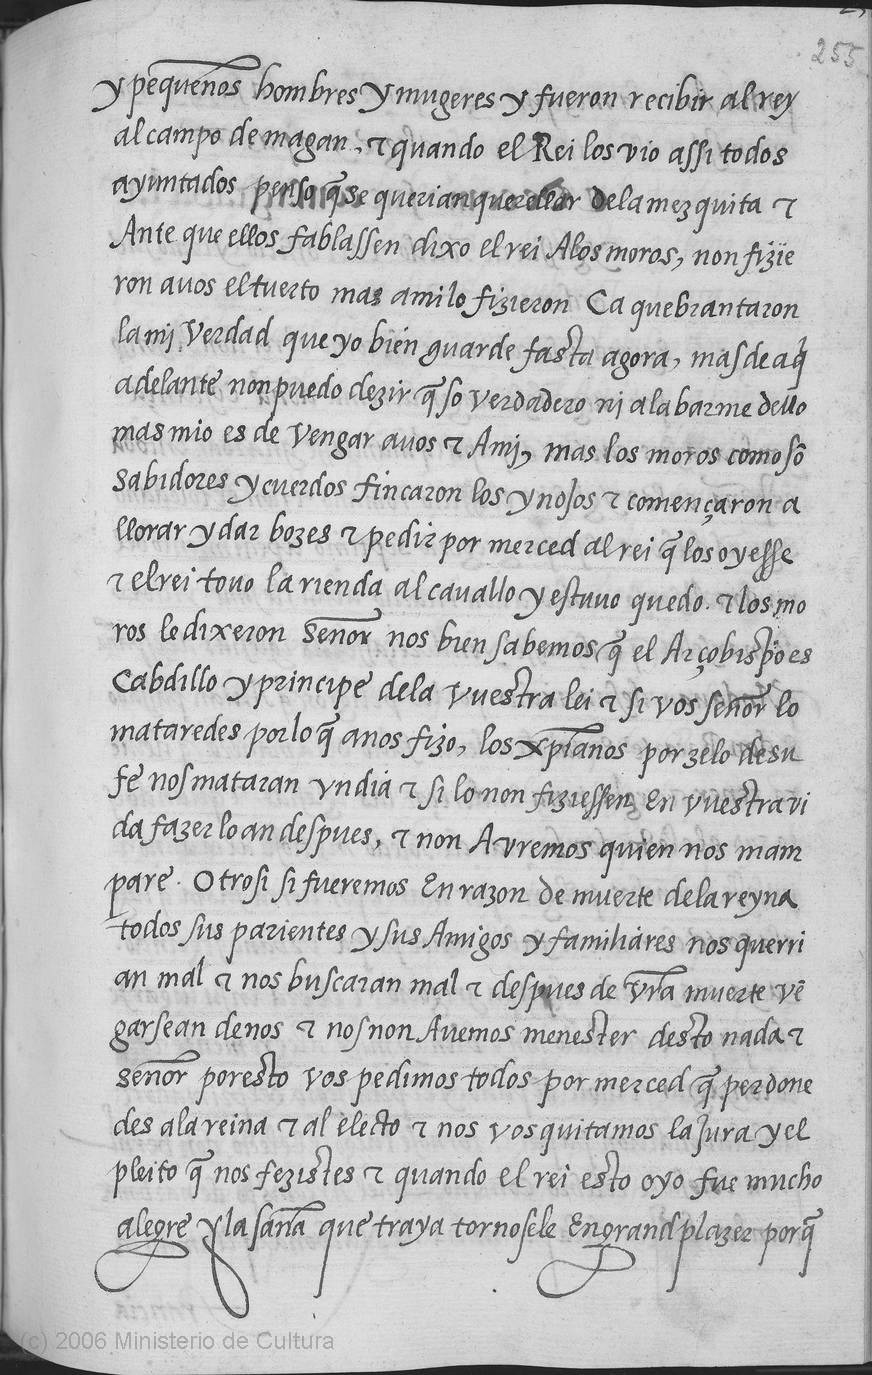 255
y pequeños hombres y mugeres y fueron recibir al rey
al campo de magan, τ quando el Rei los vio assi todos
ayuntados penso q̃ se querian querellar dela mezquita τ
Ante que ellos fablassen dixo el rei Alos moros, non fizie
ron avos el tuerto mas ami lo fizieron Ca quebrantaron
la mj Verdad que yo bien guarde fasta agora, mas de aq̃
adelante non puedo dezir q̃ so verdadero nj alabarme dello
mas mio es de Vengar avos τ Amj, mas los moros como sõ
sabidores y cuerdos fincaron los ynojos τ començaron a
llorar y dar bozes τ pedir por merced al rei q̃ los oyesse
τ el rei tovo la rienda al cavallo y estuvo quedo. τ los mo
ros le dixeron señor nos bien sabemos q̃ el Arçobispo es
Cabdillo y principe dela vuestra lei τ si vos señor lo
mataredes por lo q̃ anos fizo, los xp̃ianos por zelo de su
fe nos mataran yn dia τ si lo non fiziessen En vuestra vi
da fazer lo an despues, τ non Avremos quien nos mam
pare. Otrosi si fueremos En razon de muerte dela reyna
todos sus parientes y sus Amigos y familiares nos querri
an mal τ nos buscaran mal τ despues de vr̃a muerte vẽ
garse an de nos τ nos non Avemos menester desto nada τ
señor por esto vos pedimos todos por merced q̃ perdone
des ala reina τ al electo τ nos vos quitamos la Jura y el
pleito q̃ nos fezistes τ quando el rei esto oyo fue mucho
alegre y la saña que traya tornosele En grand plazer porq̃
(c) 2006 Ministerio de Cultura